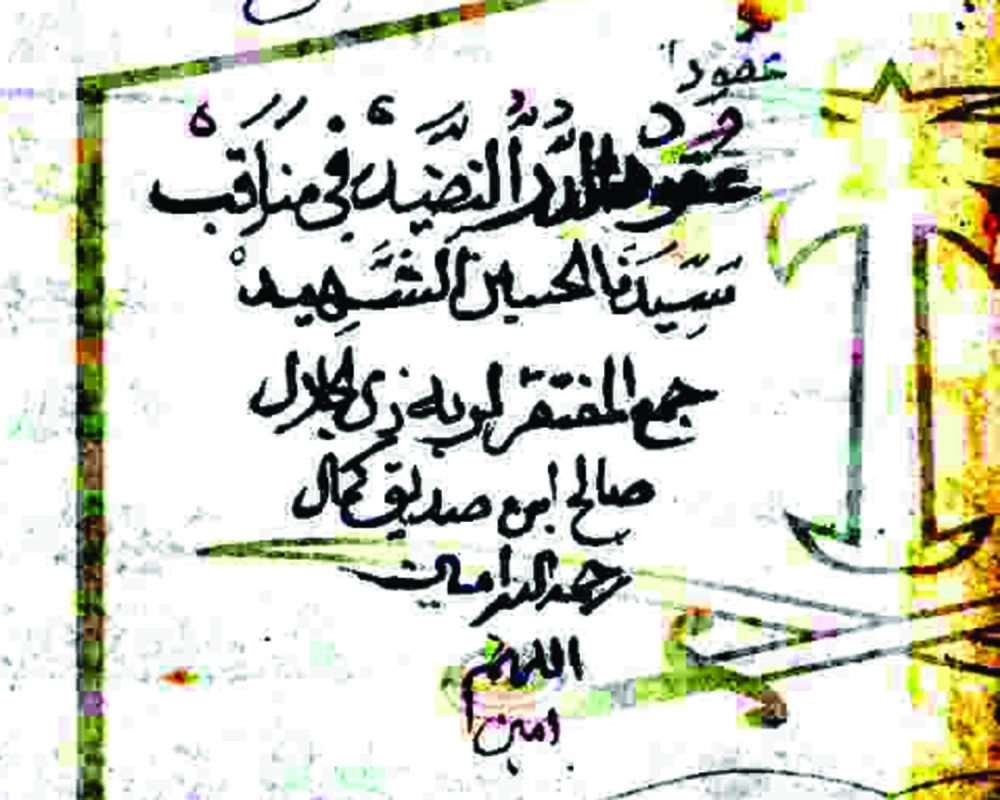 عقودا
عقود الدُّرَر النَّضِيد في مناقب
سَيِّدنا الحسين الشَّهِيد
جمع المفتقر لربه ذي الجلال
صالح ابن صديق كمال
رحمه الله امين
اللهم
امين